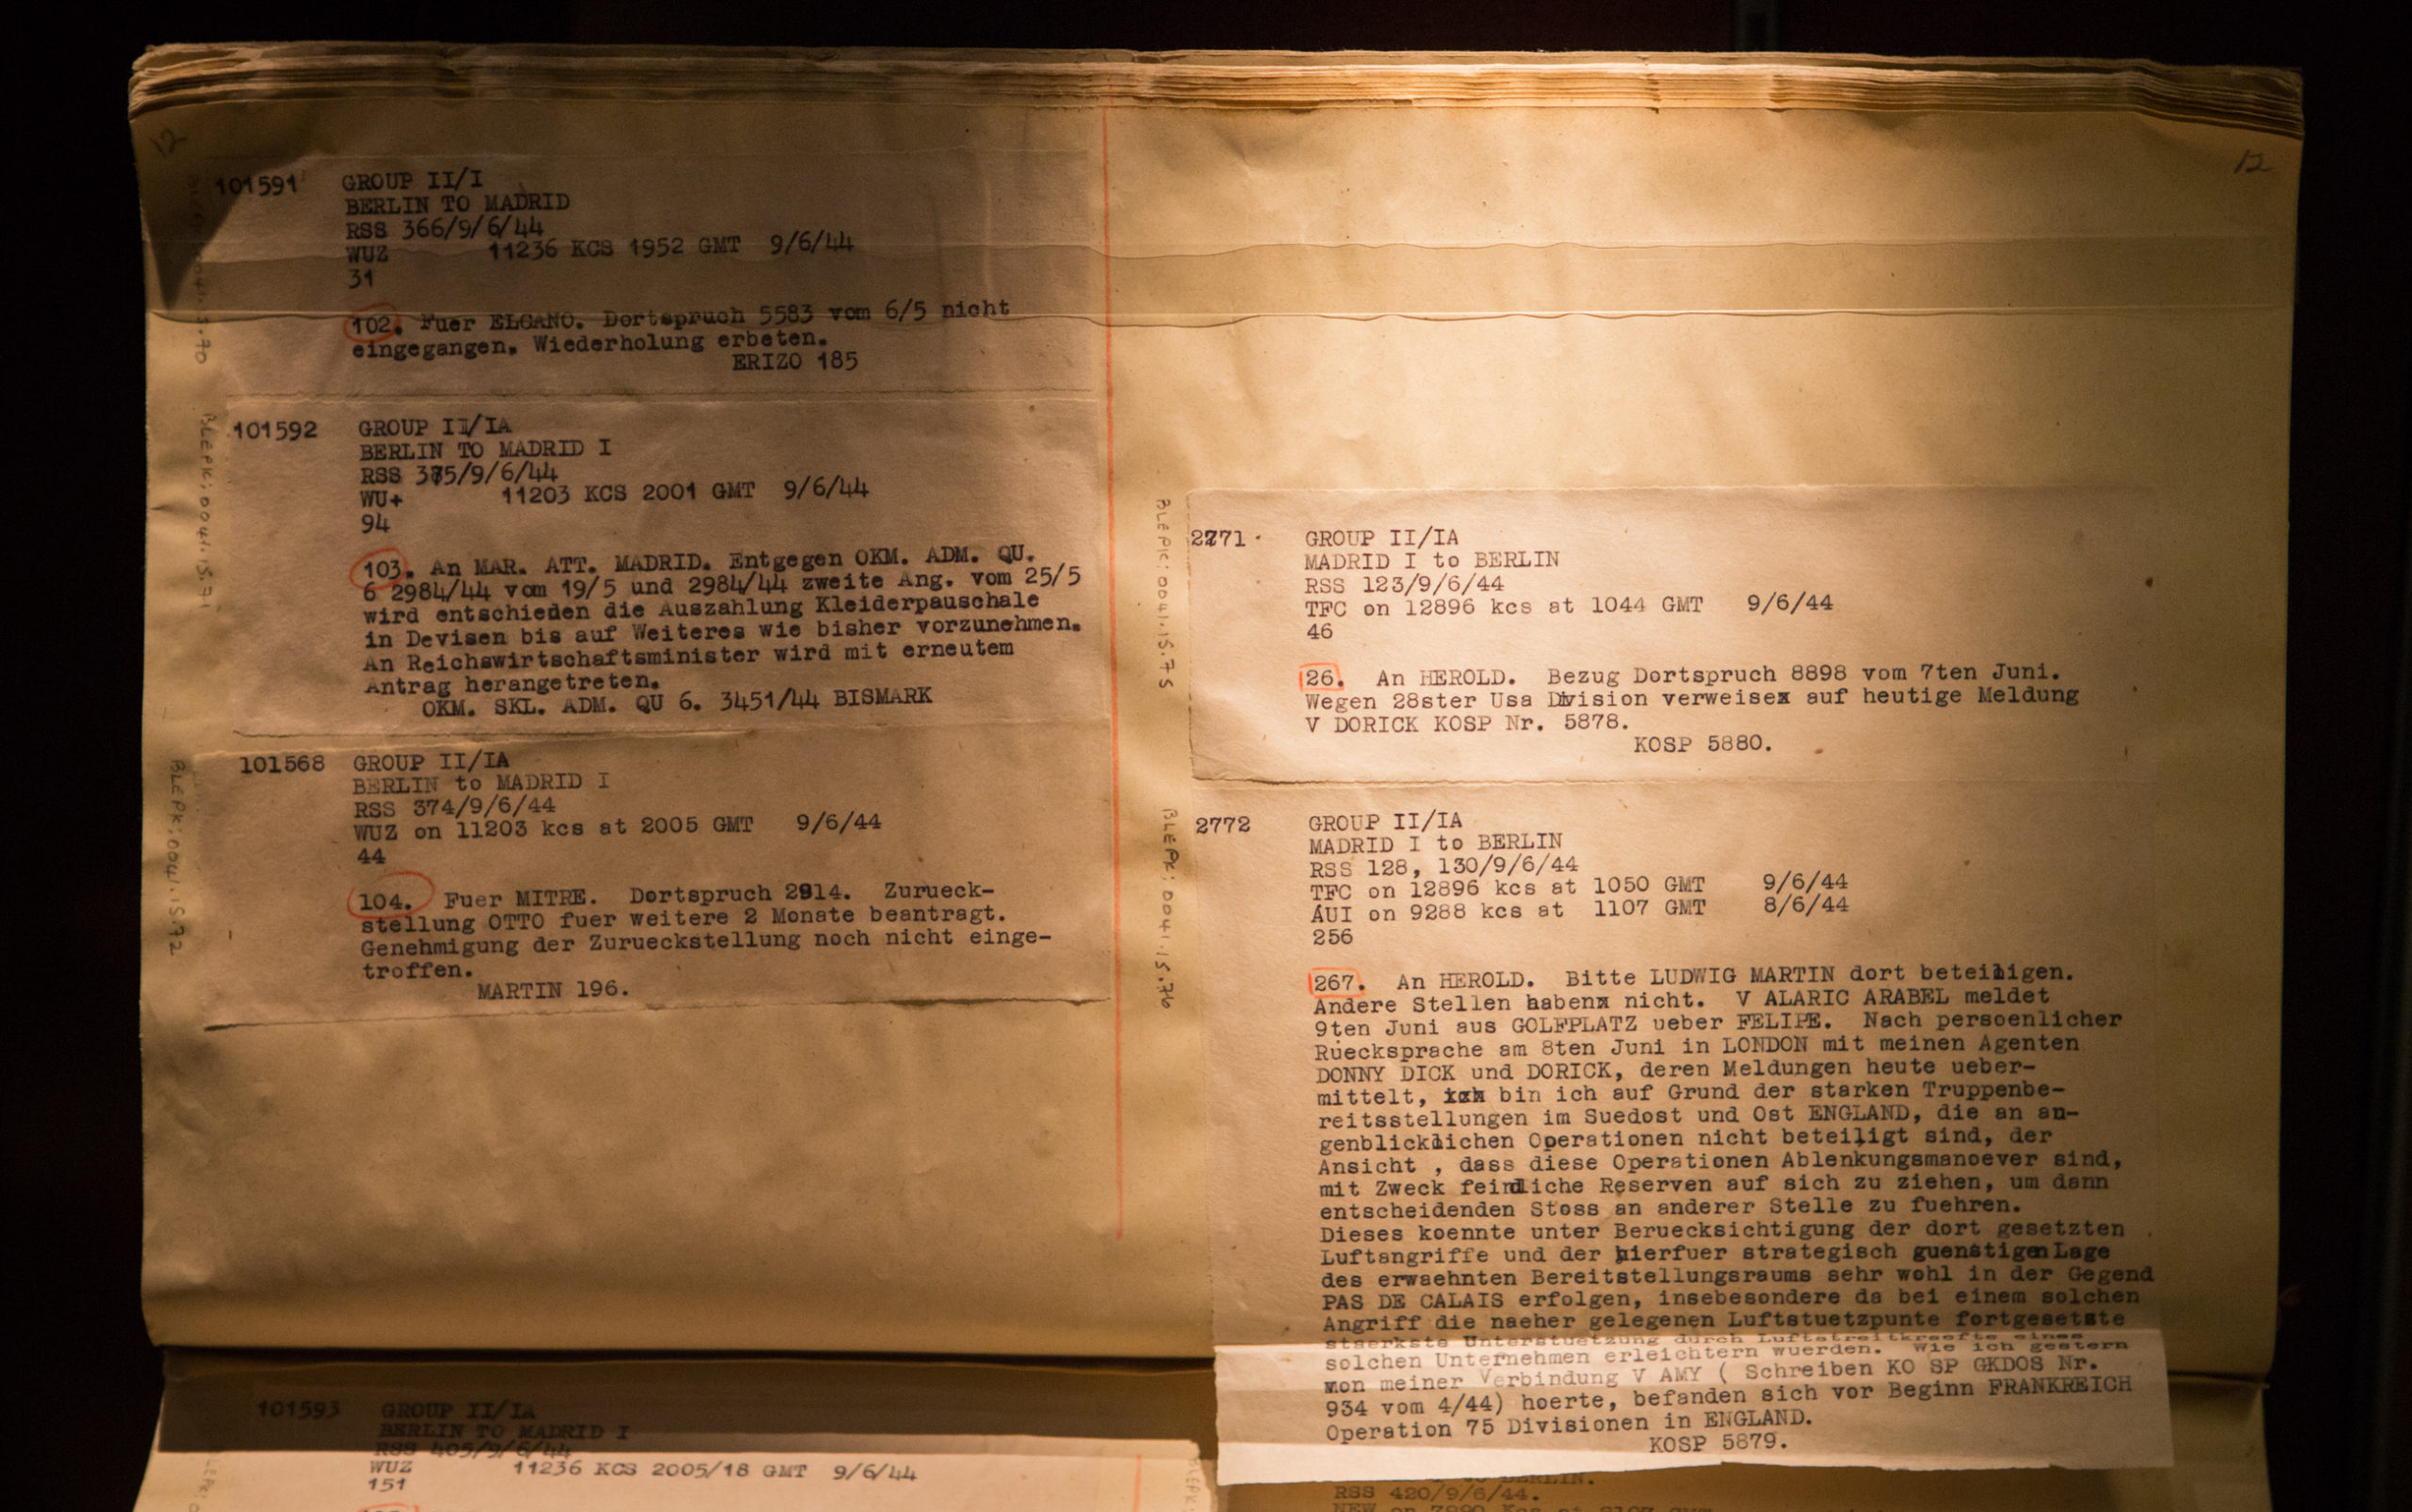 12
101591 GROUP II/I
BERLIN TO MADRID
RSS 366/9/6/44
WUZ 11236 KCS 1952 GMT 9/6/44
31
102. Fuer ELCANO. Dortspruch 5583 vom 6/5 nicht
eingegangen. Wiederholung erbeten.
ERIZO 185
BLEPK:0041.15.71
101592 GROUP II/IA
BERLIN TO MADRID I
RSS 375/9/6/44
WU+ 11203 KCS 2001 GMT 9/6/44
94
103. An MAR. ATT. MADRID. Entgegen OKM. ADM. QU.
6 2984/44 vom 19/5 und 2984/44 zweite Ang. vom 25/5
wird entschieden die Auszahlung Kleiderpauschale
in Devisen bis auf Weiteres wie bisher vorzunehmen.
An Reichswirtschaftsminister wird mit erneutem
Antrag herangetreten.
OKM. SKL. ADM. QU 6. 3451/44 BISMARK
BLEPK:0041.15.72
101568 GROUP II/IA
BERLIN to MADRID I
RSS 374/9/6/44
WUZ on 11203 kcs at 2005 GMT 9/6/44
44
104. Fuer MITRE. Dortspruch 2914. Zurueck-
stellung OTTO fuer weitere 2 Monate beantragt.
Genehmigung der Zurueckstellung noch nicht einge-
troffen.
MARTIN 196.
101593 GROUP II/IA
BERLIN TO MADRID I
RSS 405/9/6/44
WUZ 11236 KCS 2005/18 GMT 9/6/44
151
12
BLEPK:0041.15.75
2771 GROUP II/IA
MADRID I to BERLIN
RSS 123/9/6/44
TFC on 12896 kcs at 1044 GMT 9/6/44
46
26. An HEROLD. Bezug Dortspruch 8898 vom 7ten Juni.
Wegen 28ster Usa Division verweisex auf heutige Meldung
V DORICK KOSP Nr. 5878.
KOSP 5880.
BLEPK:0041.15.76
2772 GROUP II/IA
MADRID I to BERLIN
RSS 128, 130/9/6/44
TFC on 12896 kcs at 1050 GMT 9/6/44
AUI on 9288 kcs at 1107 GMT 8/6/44
256
267. An HEROLD. Bitte LUDWIG MARTIN dort beteiligen.
Andere Stellen habenx nicht. V ALARIC ARABEL meldet
9ten Juni aus GOLFPLATZ ueber FELIPE. Nach persoenlicher
Ruecksprache am 8ten Juni in LONDON mit meinen Agenten
DONNY DICK und DORICK, deren Meldungen heute ueber-
mittelt, bin ich auf Grund der starken Truppenbe-
reitsstellungen im Suedost und Ost ENGLAND, die an an-
genblicklichen Operationen nicht beteiligt sind, der
Ansicht , dass diese Operationen Ablenkungsmanoever sind,
mit Zweck feindliche Reserven auf sich zu ziehen, um dann
entscheidenden Stoss an anderer Stelle zu fuehren.
Dieses koennte unter Beruecksichtigung der dort gesetzten
Luftangriffe und der hierfuer strategisch guenstigen Lage
des erwaehnten Bereitstellungsraums sehr wohl in der Gegend
PAS DE CALAIS erfolgen, insebesondere da bei einem solchen
Angriff die naeher gelegenen Luftstuetzpunte fortgesetste
staerkste Unterstuetzung durch Luftstreitkraefte eines
solchen Unternehmen erleichtern wuerden. Wie ich gestern
von meiner Verbindung V AMY ( Schreiben KO SP GKDOS Nr.
934 vom 4/44) hoerte, befanden sich vor Beginn FRANKREICH
Operation 75 Divisionen in ENGLAND.
KOSP 5879.
BERLIN.
RSS 420/9/6/44.